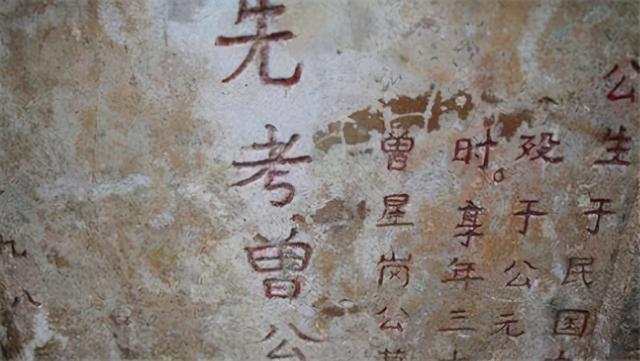 公生于民国
殁于公元
时。享年三
曾星岗公
先考曾公
九八